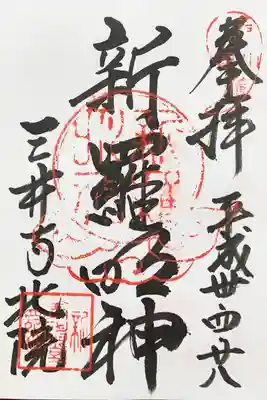 奉拝
平成卅四廿八
新羅明神
三井寺北院